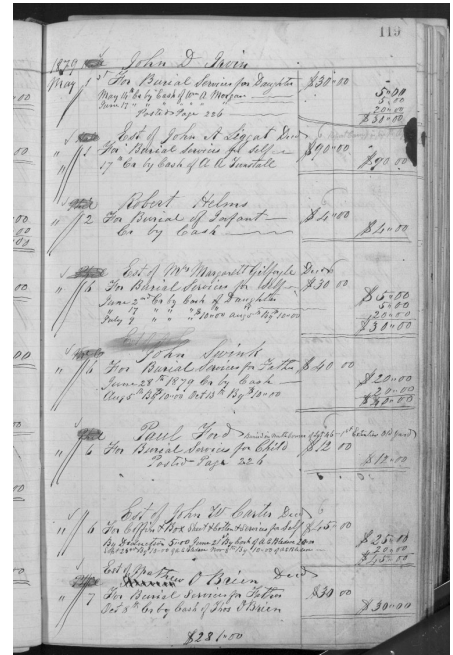 119
1879 John D Irvin
May 1st For Burial Services for Daughter $30.00
May 14th Cr by Cash of Wm A Morgan 5.00
June 17 " " " " " " 5.00
Posted Page 226 20.00
$30.00
Est of John A Decd
" 1 For Burial Services for Self $90.00
17th Cr by Cash of A A Tunstall $90.00
Robert Helms
" 2 For Burial of Infant $4.00
Cr by Cash $4.00
Est of Mrs Margarett Decd
" 6 For Burial Services for Self $30.00
June 2nd Cr by Cash of Daughter $15.00
" 17 " " " " 5.00
July 9 " " " 10.00 Aug 5th By 10.00
$30.00
John Swink
" 6 For Burial Services for Father $40.00
June 28th 1879 Cr by Cash $20.00
Aug 5th By 10.00 Oct 13th By 10.00 20.00
$40.00
Paul Ford
" 6 For Burial Services for Child $12.00
Posted Page 226 $12.00
Est of John W Carter Decd
" 6 For Coffin & Box Services for Self $45.00
$25.00
20.00
$45.00
Est of Mathew O Brien Decd
" 7 For Burial Services for Father $30.00
Oct 8th Cr by Cash of Thos O'Brien $30.00
$281.00